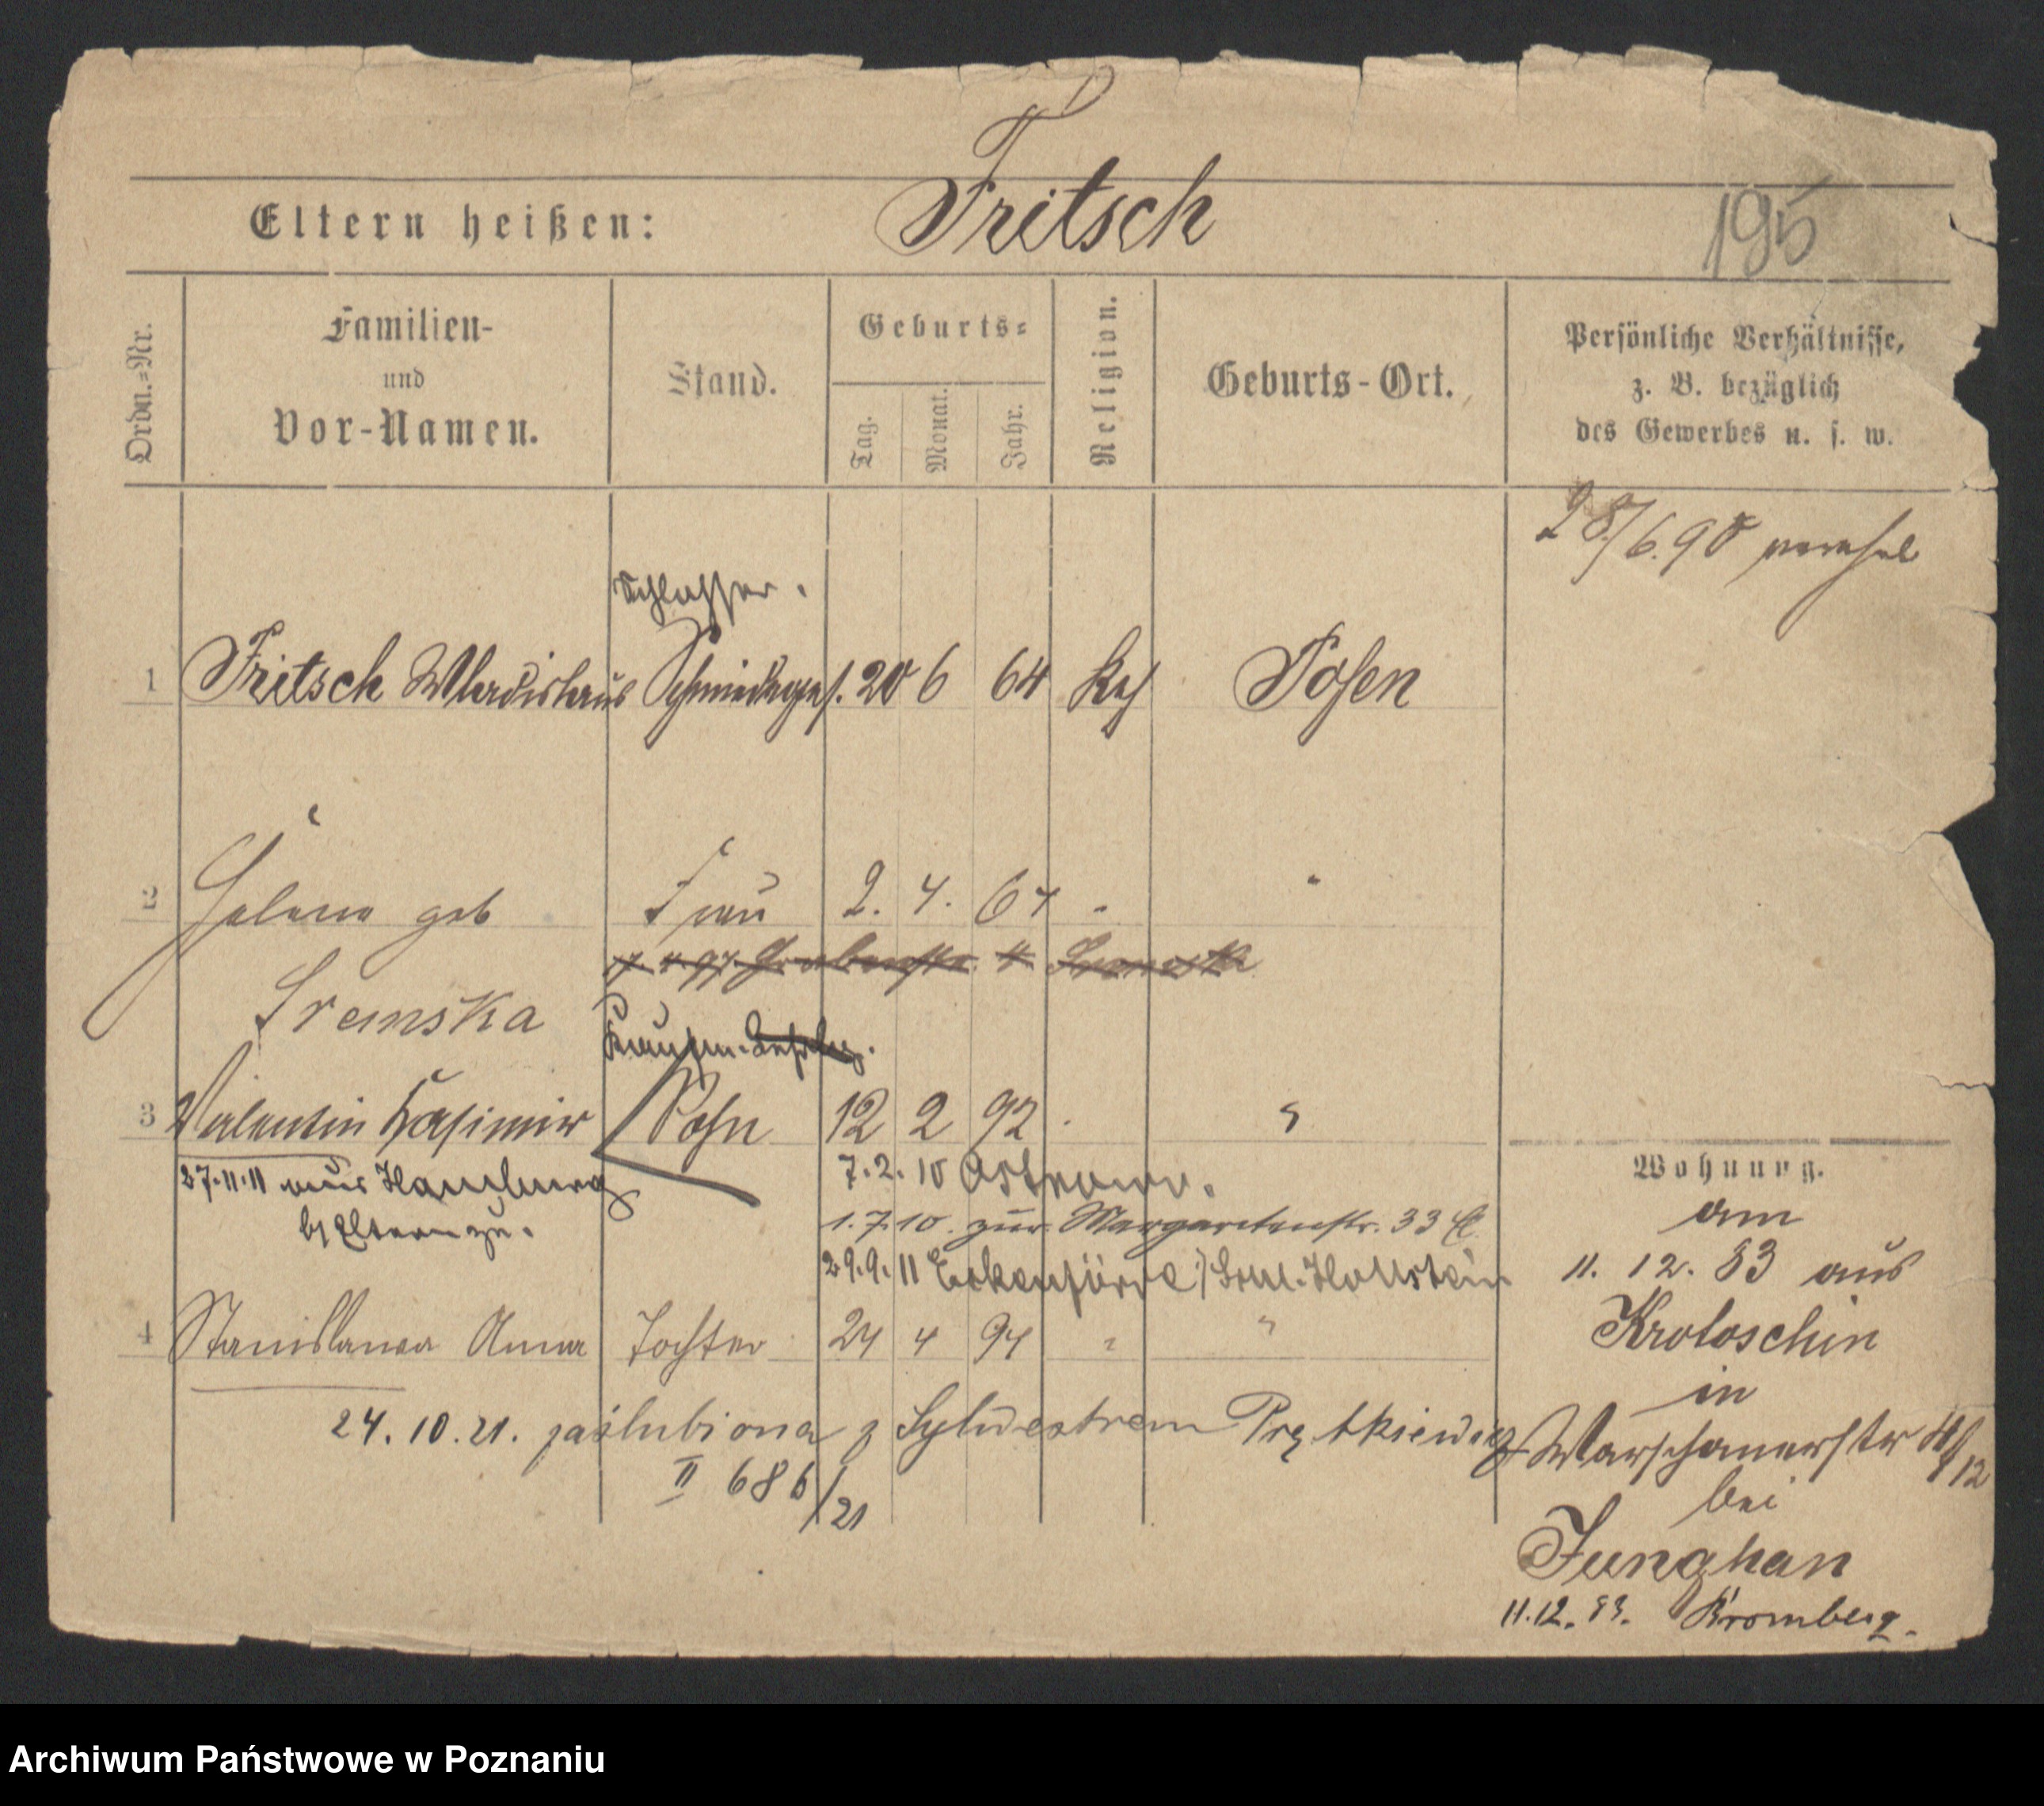 Eltern heißen: Fritsch
195
Ordn.=Nr.
Familien-
und
Vor-Namen.
Stand.
Geburts=
Tag.
Monat.
Jahr.
Religion.
Geburts-Ort.
Persönliche Verhältnisse,
z. B. bezüglich
des Gewerbes u. s. w.
28/6.90 verehel
Schlosser.
1 Fritsch Wladislaus Schmiedeges. 20 6 64 Kath Posen
2 Helene geb Frau 2. 4. 67 " "
Sremska
Kaufm.
3 Valentin Kasimir Sohn 12 2 92 " "
27.11.11 aus Hamburg 7.2.10 Ostrowo.
b/ Eltern zu. 1.7.10. zur. Margaretenstr. 33
29.9.11 Eckenförde Holstein
4 Stanislawa Anna Tochter 24 4 94 " "
24.10.21. zaślubiona z Sylwestrem Prętkiewicz
II 686/21
Wohnung.
am
11. 12. 83 aus
Krotoschin
in
Warschauerstr
bei
Junghan
11.12.83. Bromberg.
Archiwum Państwowe w Poznaniu